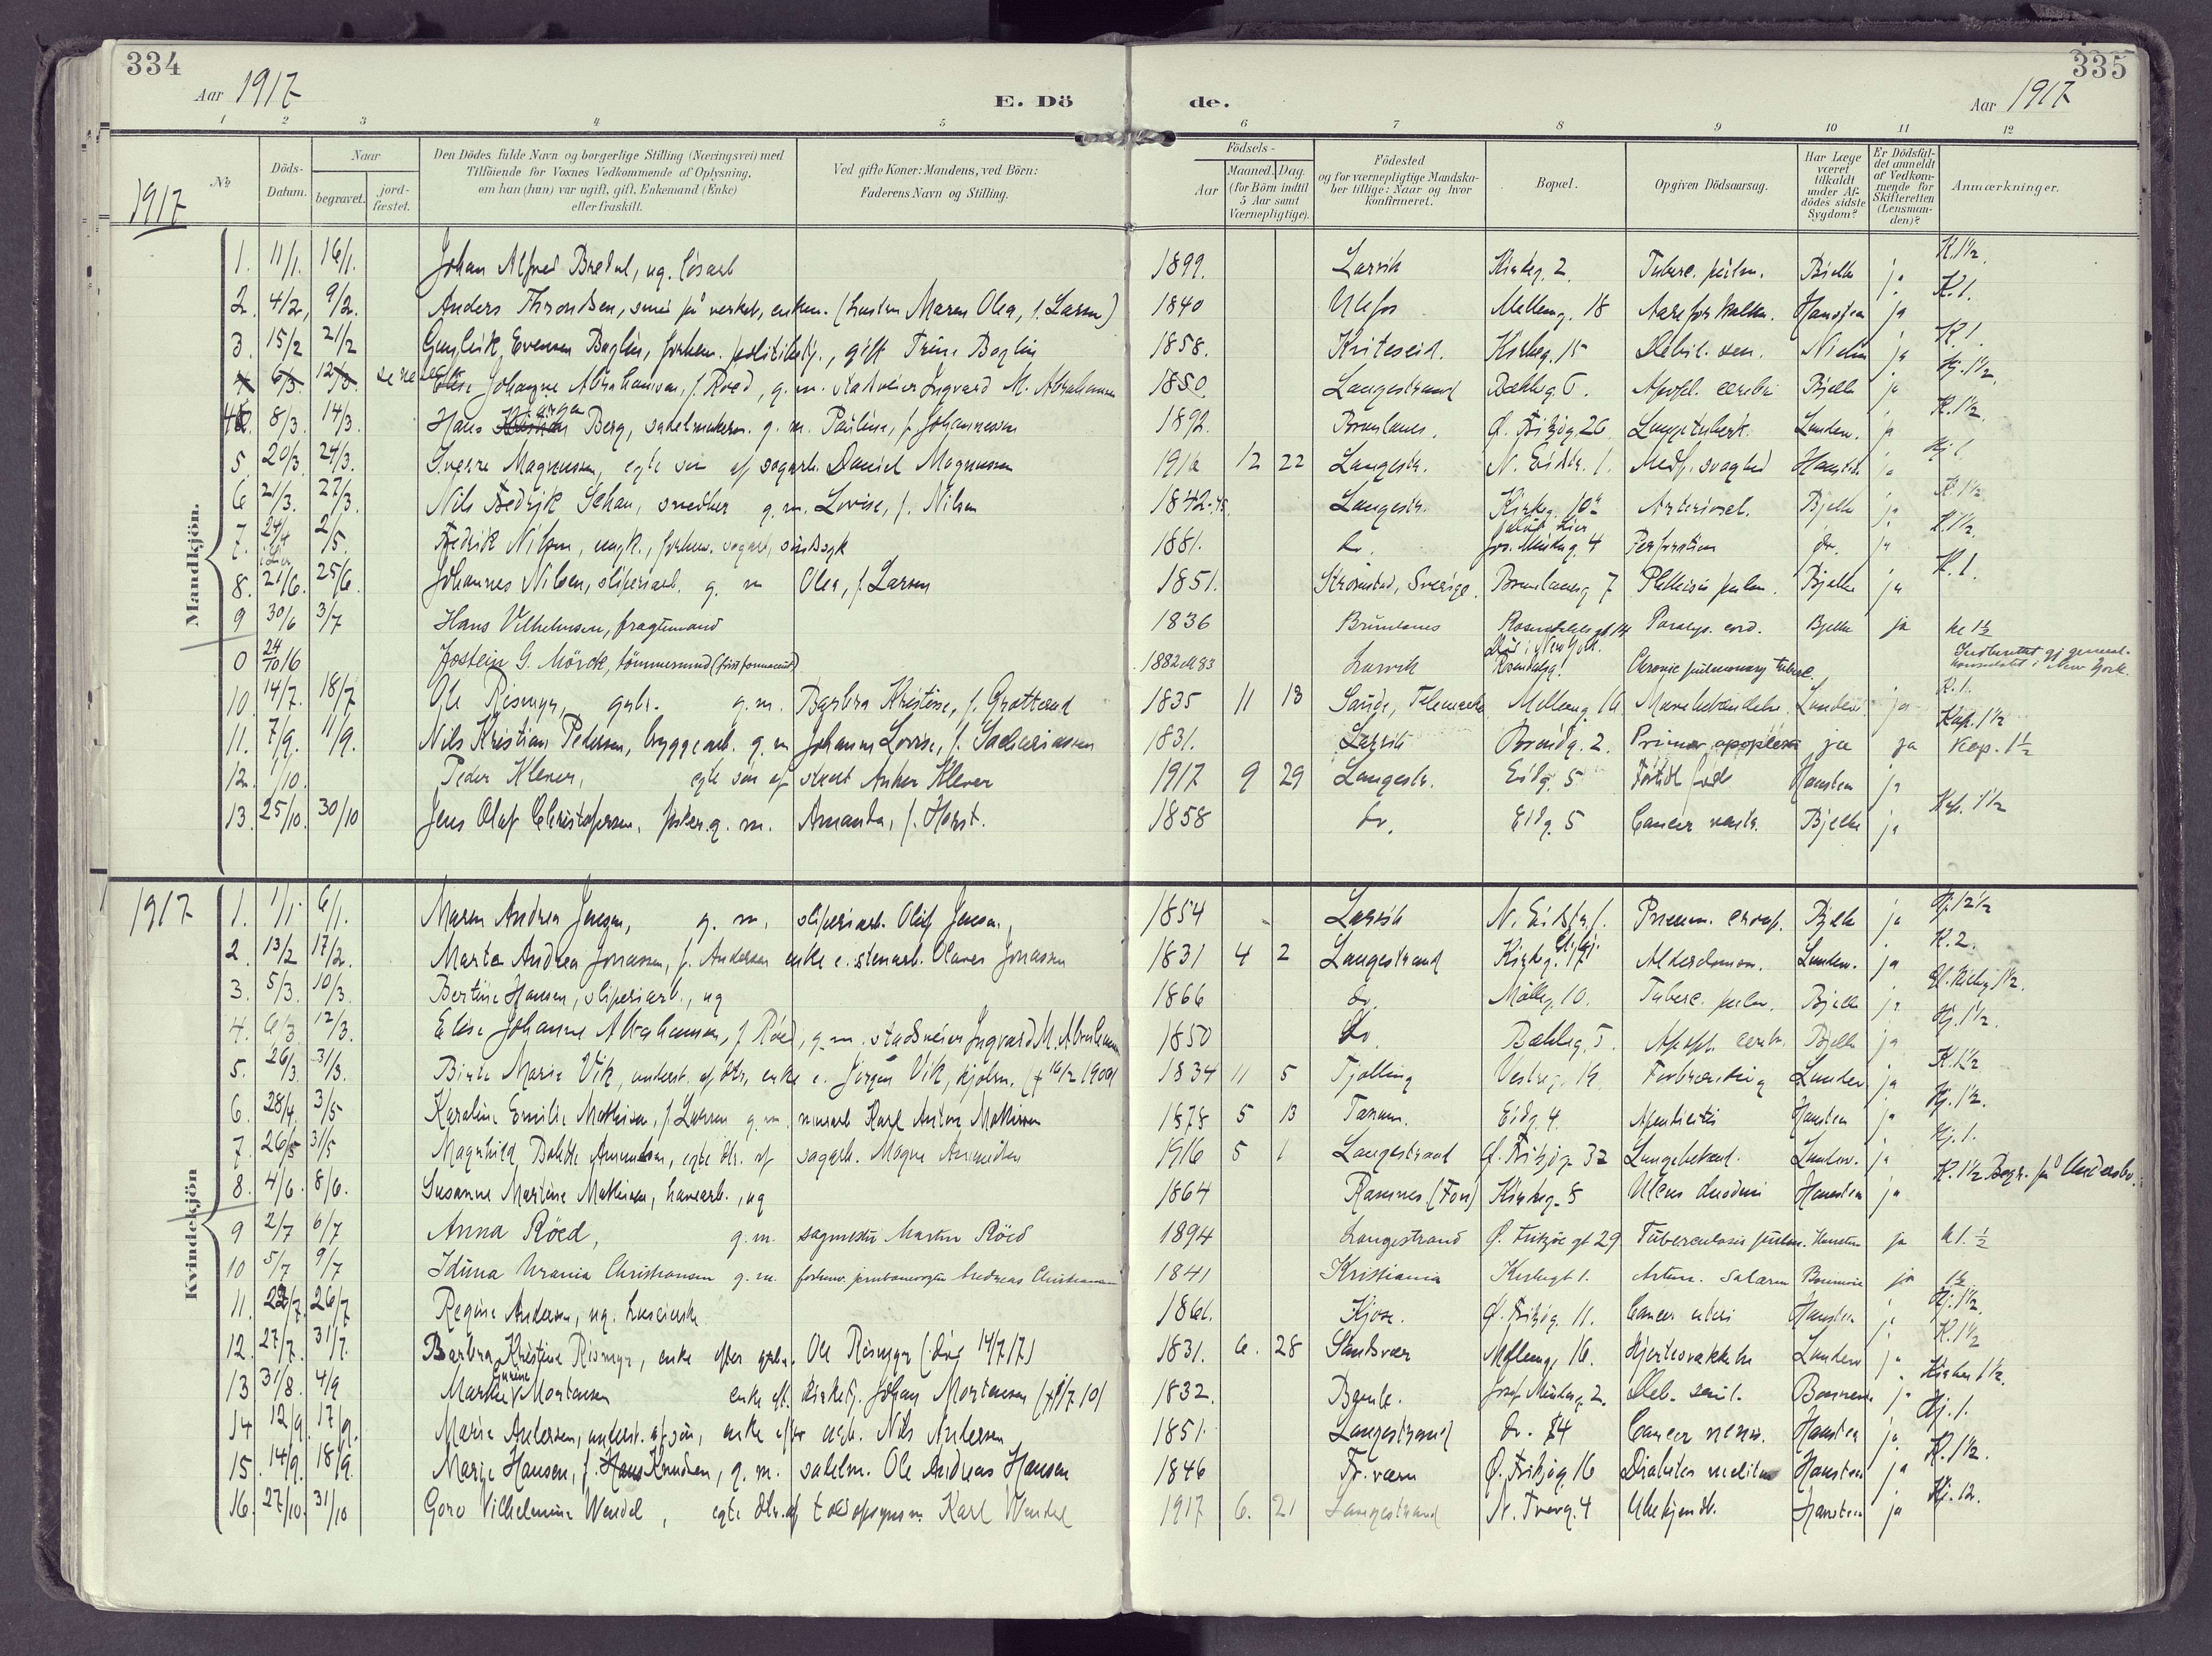 334
335
Aar 1917
E. Dö
de.
Aar 1917
1 2 3 4 5 6 7 8 9 10 11 12
1917
No
Döds-
Datum.
Naar
begravet.
jord-
fæstet.
Den Dödes fulde Navn og borgerlige Stilling (Næringsvei) med
Tilföiende for Voxnes Vedkommende af Oplysning,
om han (hun) var ugift, gift, Enkemand (Enke)
eller fraskilt.
Ved gifte Koner: Mandens, ved Börn:
Faderens Navn og Stilling.
Födsels-
Aar
Maaned. Dag.
(for Börn indtil
5 Aar samt
Værnepligtige).
Födested
og for værnepligtige Mandska-
ber tillige: Naar og hvor
konfirmeret.
Bopæl.
Opgiven Dödsaarsag.
Har Læge
været
tilkaldt
under Af-
dödes sidste
Sygdom?
Er Dödsfal-
det anmeldt
af Vedkom-
mende for
Skifteretten
(Lensman-
den)?
Anmærkninger.
Mandkjön.
1. 11/1. 16/1. Johan Alfred Bredal, ug. løsarb 1899. Larvik Kirkeg. 2. Tuberc. pulm. Bjelke ja K. 1½.
2. 4/2, 9/2. Anders Throndsen, smed på verket, enkem. (hustru Maren Olea, f. Larsen) 1840 Ulefos Mellemg. 18 Hanstein ja K. 1.
3. 15/2 21/2 Evensen Boglin, forhen. politibetj., gift Trine Boglin 1858. Kviteseid. Kirkeg. 15 Debil. sen. ja K. 1.
4 6/3. 12/3. Elise Johanne Abrahamsen, f. Røed, g. m. stadsveier Ingvard M. Abrahamsen 1850. Langestrand Bækkeg. 5. Apopl. cerebri Bjelke ja Kj. 1½.
4 8/3. 14/3. Hans Jørgen Berg, sadelmakersv. g. m. Pauline, f. Johannessen 1892. Brunlanes. Ø. Fritzøg. 26. Lungetuberk. Lunden. ja K. 1½.
5. 20/3. 24/3. Sverre Magnussen, egte søn af sagarb. Daniel Magnussen 1916 12 22 Langestr. N. Eidstr. 1. Medf. svaghed Hanstein ja Kj 1.
6 21/3. 27/3. Nils Fredrik Schau, snedker g. m. Lovise, f. Nilsen 1842. Langestr. Kirkeg. 10a Arteriosel. Bjelke ja K. 1½
7. 24/4 2/5. Fredrik Nilsen, ungk., forhen. sagarb, sindssyk 1881. do. Perforation do. ja K. 1½.
8. 21/6. 25/6. Johannes Nilsen, sliperiarb. g. m Olea, f. Larsen 1851. Strømstad, Sverige. Brunlanesg 7 Phthisis pulm. Bjelke ja K. 1.
9 30/6 3/7 Hans Vilhelmsen, fragtemand 1836 Brunlanes Paralys. cord. Bjelke ja kl 1½
0 24/10 16 Jostein G. Mörck, tömmermand 1882 Larvik Død i New York. Chronic pulmonary tuberc. Indberettet gj general-
konsulatet i New York.
10. 14/7. 18/7 Ole Rismyr, grbr. g. m. Barbra Kristine, f. Grøtterud 1835 11 13 Saude, Telemarken Mellemg. 16 Mavebetændelse. Lunden. ja K. 1.
11. 7/9. 11/9. Nils Kristian Pedersen, bryggearb. g. m Johanne Lovise, f. Sachariassen 1831. Larvik Brandg. 2. ja ja Kap. 1½
12. 1/10. Peder Klever, egte søn af Anker Klever 1917 9 29 Langestr. Eidg. 5 Fortidl. født Hanstein ja Kap. 1½
13. 25/10. 30/10 Jens Olaf Christophersen, g. m. Amanda, f. Horst. 1858 do. Eidg. 5 Cancer ventr. Bjelke ja Kap. 1½
1917
Kvindekjön
1. 1/1. 6/1. Maren Andrea Jensen, g. m. sliperiarb. Oluf Jensen, 1854 Larvik N. Eidstr. 1. Pneum. croup. Bjelke ja Kj. 12½
2. 13/2 17/2. Marte Andrea Jonassen, f. Andersen enke e. stenarb. Olaves Jonassen 1831 4 2 Langestrand Kirkeg. 17 Alderdomssv. Lunden. ja K. 2.
3. 5/3. 10/3. Bertine Hansen, sliperiarb., ug 1866 do. Mølleg. 10. Tuberc. pulm. Bjelke ja 1½.
4. 6/3. 12/3. Elise Johanne Abrahamsen, f. Røed, g. m. stadsveier Ingvard M. Abrahamsen 1850 do. Bækkeg. 5. Apopl. cerebr. Bjelke ja Kj. 1½.
5. 26/3. 31/3. Birte Marie Vik, underst. af dtr., enke e. Jörgen Vik, 1834 11 5 Tjølling Vestreg. 19. Forbrænding Lunden ja K. 1½
6. 28/4. 3/5 Karoline Emilie Mathisen, f. Larsen g. m. murarb Karl Anton Mathisen 1878 5 13 Tanum. Eidg. 4. Apendicitis Hanstein ja Kj. 1½.
7. 26/5 31/5 Magnhild Bolette Amundsen, egte dtr. af sagarb. Magne Amundsen 1916 5 1 Langestrand Ø. Fritzøg. 32 Lungebetænd. Lunden. ja Kj. 1.
8. 4/6. 8/6. Susanne Martine Mathisen, havearb., ug 1864 Ramnes. Kirkeg. 8 Ulcus duodeni Hanstein ja K. 1½. Begr. på Undersbo.
9 2/7 6/7 Anna Röed, g. m. sagmester Martin Röed 1894 Langestrand Ø. Fritzøe gt 29 Tuberculosis pulm. Hanstein ja kl. ½
10 5/7 9/7 Iduna Urania Christiansen g. m. Andreas Christiansen 1841 Kristiania Kirkegt 1. ja 1½
11. 22/7. 26/7 Regine Andersen, ug. 1861. Kjose. Ø. Fritzøg. 11. Cancer uteri Hanstein ja Kj. 1½.
12. 27/7. 31/7. Barbra Kristine Rismyr, enke efter grbr. Ole Rismyr (död 14/7 17) 1831. 6. 28 Sandsvær Mellemg. 16. Hjertesvækkelse Lunden ja K. 1½
13 31/8. 4/9 Marthe Gurine Mortensen enke eft. Johan Mortensen 1832. Bamle. Josef Müllerg. 2. Deb. senil. ja Kirken 1½.
14 12/9. 17/9. Marie Andersen, underst. af søn, enke efter Nils Andersen 1851. Langestrand do. 4 Cancer Hanstein ja Kj. 1.
15. 14/9. 18/9. Marie Hansen, f. Knudsen, g. m. sadelm. Ole Andreas Hansen 1846 Fr.værn Ø. Fritzøg 16 Diabetes melitus Hanstein ja K. 1½.
16. 27/10. 31/10 Goro Vilhelmine Wendel, egte dtr. af toldopsynsm. Karl Wendel 1917 6. 21 Langestrand N. Tverg. 4 Ubekjendt. Hanstein ja Kj. 12.